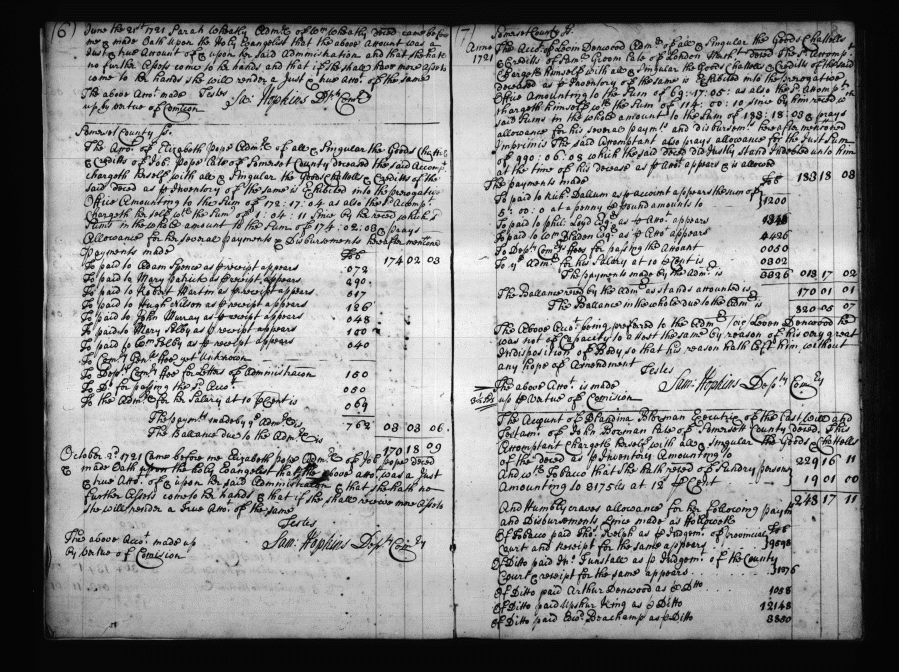 (6)
June the 21st 1721 Sarah Wheatly Admx of Wm Wheatly deced came before
me & made Oath Upon the Holy Evangelist that the above Amount was a
Just & true Amount of & upon her Said Administration and that she hath
no further Assets come to her hands and that if she shall have more assets
come to her hands she will render a Just & true Amt of the same
The above Amt made Testes
up by Vertue of Comission Sam Hopkins Dpty Comry
Somerset County Ss.
The Amt of Elizabeth Pope Admx of all & Singular the Goods Chattels
& Creditts of Job Pope late of Somerset County deceased the said Accompt
chargeth her self with all & Singular the Goods & Chattells & Creditts of the
said deced as p Inventory of the same is Exhibited into the prerogative
Office Amounting to the Sum of 172:17:04 as also the sd Acompt
Chargeth her self wth the Sum of 1:04:11 since by her reced which
Sums in the whole amount to the Sum of 174:02:03 & prays
Allowance for her several payments & Disbursements hereafter mentioned
Payments made 174 02 03
To paid to Adam Spence as p receipt appears 072
To paid to Mary Patrick as p receipt appears 290
To paid to Robert Martin as p receipt appears 017
To paid to Hugh Nilson as p receipt appears 126
To paid to John Murray as p receipt appears 048
To paid to Mary Selby as p receipt appears 100
To paid to Wm Selby as p receipt appears 040
To Comry Genls fees yet Unknown
To Depty Comrys fees for Letters of Administration 150
To Do for passing the sd Accot 050
To the Admx for her Salary at 10 p Cent is 069
The paymts made by ye Admx is 762 03 03 06
The Ballance due to the Admx is 170 18 09
October 2d 1721 Came before me Elizabeth pope Admx of Job pope deced
& made Oath upon the holy Evangelist that the above amt was a Just
& true Amt of & upon her said Administration & that she hath no
further Assets come to her hands & that if she shall receive more Assets
she will render a true Amt of the same
Testes
The above Accot made up Sam: Hopkins Depty Comry
by Vertue of Comission
(7)
Somerset County Ss.
Anno The Accot of Levin Denwood Admr of all & Singular the Goods Chattells
1721 & Creditts of Saml Groom late of London deced the sd Accompt
Chargeth himself with all & Singular the Goods Chattells & Creditts of the said
deceased as p Inventory of the same is Exhibited into the prerogative
Office Amounting to the Sum of 69:17:05: as also the sd Accompt
chargeth himself wth the Sum of 114:00:10 since by him reced wch
said Sums in the whole amount to the Sum of 183:18:03 & prays
allowance for his several paymts and disbursemts hereafter mentioned
Imprimis The said Accomptant also prays allowance for the Just Sum
of 990:06:03 which the said deced did Justly stand Indebted unto him
at the time of his decease as p Amt appears & is allowed
The payments made 183 18 03
To paid to Nich: Dallum as p account appears the sum of
5:00:0 at a penny p pound amounts to 1200
To paid to phil: Loyd Esq as p Amt appears 1348
To paid to Esqr as p Amt appears 0426
To Depty Comrys fees for passing the Amount 0050
To ye Admr for his Salary at 10 p Cent is 0302
The payments made by the Admr is 3326 013 17 02
The Ballance reced by the Admr as stands amounted is 170 01 01
The Ballance in the whole due to the Admr is 820 05 07
The Above Accot being prefered to the Admr /viz/ Levin Denwood he
was not of Capacity to attest the same by reason of his very great
Indisposition of Body so that his reason hath left him, without
any hope of Amendment Testes
The above Amt is made Sam: Hopkins Depty Comry
up p Vertue of Comision
The Account of Blandina Bozman Executrix of the Last Will and
Testamt of John Bozman late of Somersett County deced. This
Accomptant Chargeth herself with all & Singular the Goods & Chattells
of the deced as p Inventory Amounting to 229 16 11
And wth Tobacco that she hath reced of Sundry persons
Amounting to 3175 lbs at 12 p Cent 19 01 00
248 17 11
And Humbly craves allowance for her following paymts
and Disbursements since made as Followeth
Of Tobacco paid Tho: Relph as p Judgemt of provincial
Court and Receipt for the same appears 9898
Of Ditto paid Jn: Tunstall as p Judgemt of the County
Court & receipt for the same appears 1376
Of Ditto paid Arthur Denwood as p Ditto 1058
Of Ditto paid Upshur King as p Ditto 12148
Of Ditto paid Edw: Beachamp as p Ditto 3350